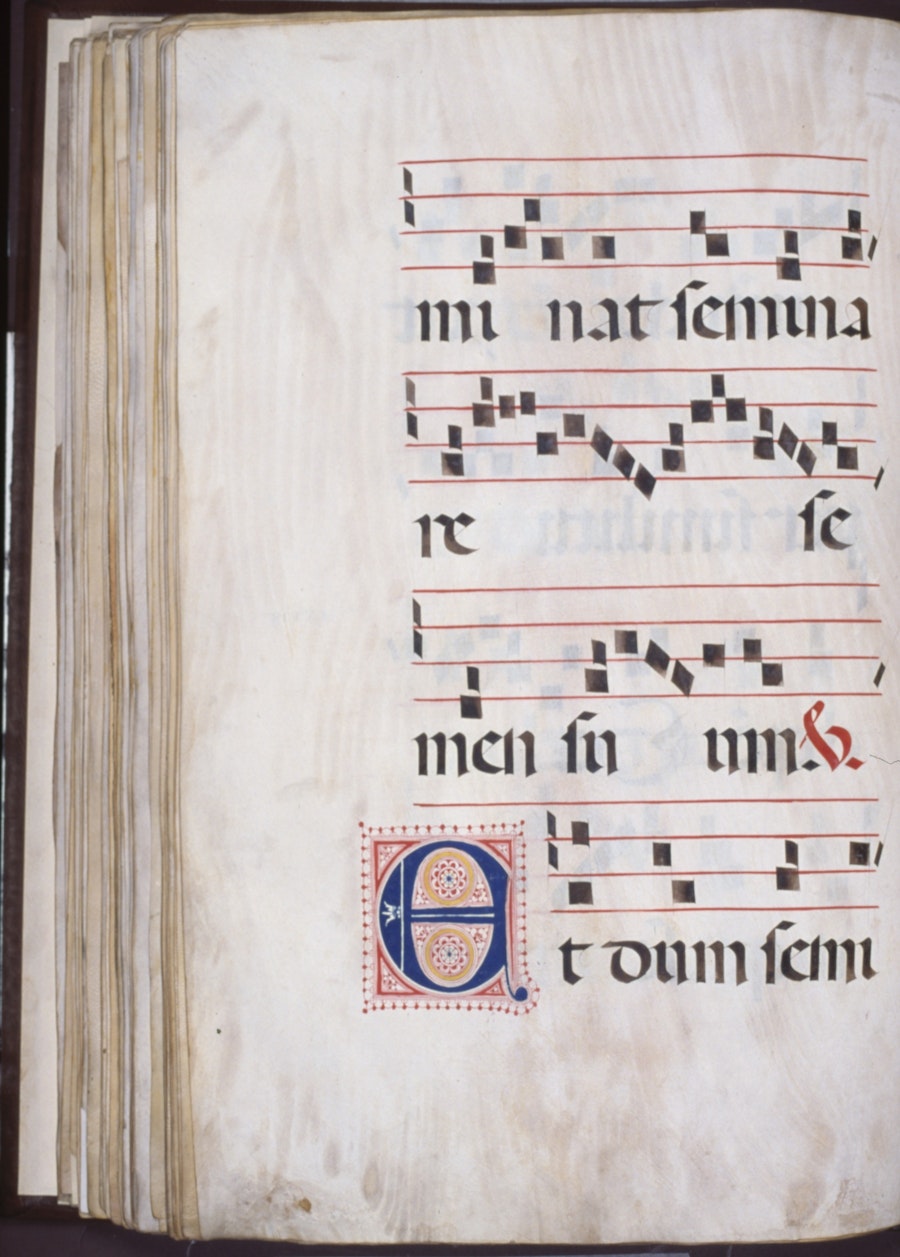 mi nat semina
re se
men su um. V.
Et dum semi